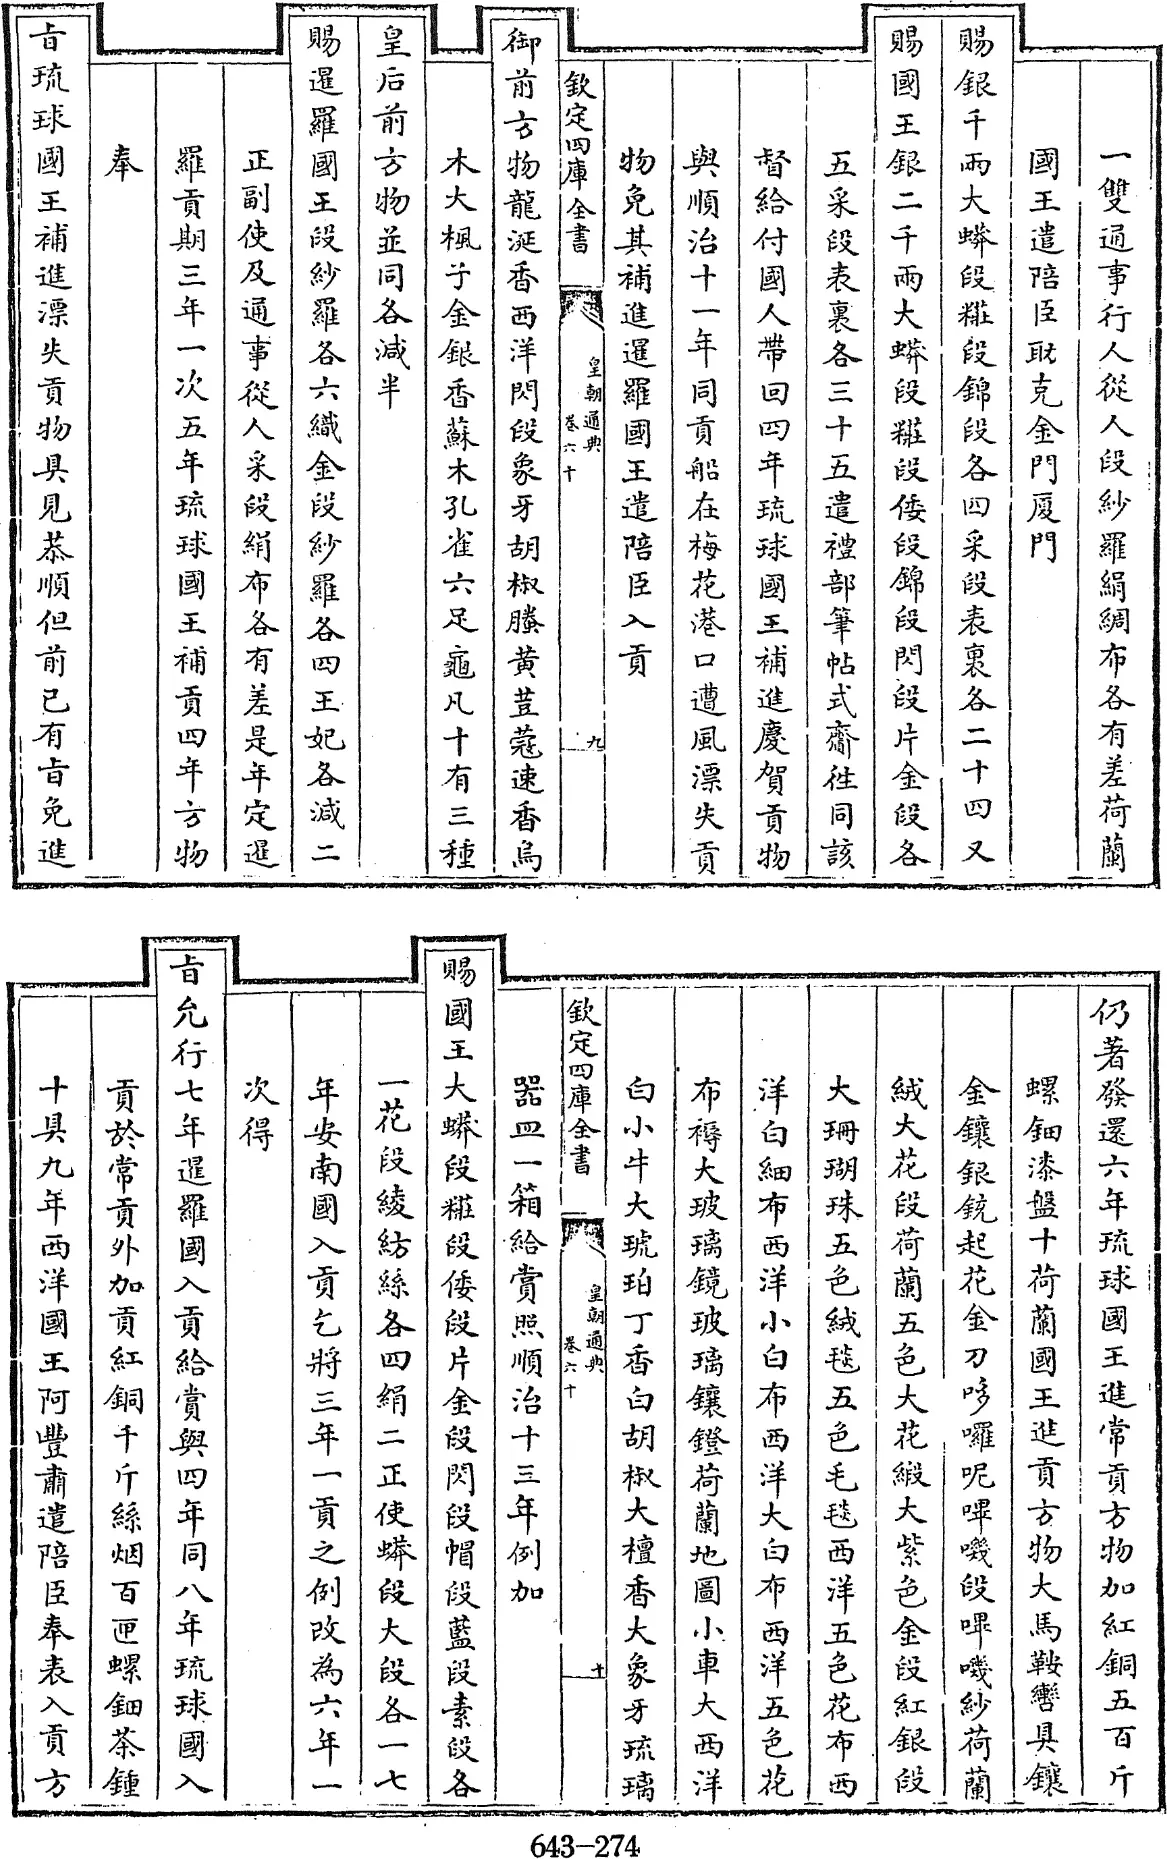 一雙通事行人從人段紗羅絹綢布各有差荷蘭
國王遣陪臣耿克金門廈門
賜銀千兩大蟒段糚段錦段各四采段表裏各二十四又
賜國王銀二千兩大蟒段糚段倭段錦段閃段片金段各
五采段表裏各三十五遣禮部筆帖式齎徃同該
督給付國人帶回四年琉球國王補進慶賀貢物
與順治十一年同貢船在梅花港口遭風漂失貢
物免其補進暹羅國王遣陪臣入貢
欽定四庫全書
皇朝通典
卷六十
九
御前方物龍涎香西洋閃段象牙胡椒螣黄荳蔻速香烏
木大楓子金銀香蘇木孔雀六足龜凡十有三種
皇后前方物並同各減半
賜暹羅國王段紗羅各六織金段紗羅各四王妃各減二
正副使及通事從人采段絹布各有差是年定暹
羅貢期三年一次五年琉球國王補貢四年方物
奉
㫖琉球國王補進漂失貢物具見恭順但前已有㫖免進
仍著發還六年琉球國王進常貢方物加紅銅五百斤
螺鈿漆盤十荷蘭國王進貢方物大馬鞍轡具鑲
金鑲銀銃起花金刀哆囉呢嗶嘰段嗶嘰紗荷蘭
絨大花段荷蘭五色大花緞大紫色金段紅銀段
大珊瑚珠五色絨毯五色毛毯西洋五色花布西
洋白細布西洋小白布西洋大白布西洋五色花
布褥大玻璃鏡玻璃鑲鐙荷蘭地圖小車大西洋
白小牛大琥珀丁香白胡椒大檀香大象牙琉璃
欽定四庫全書
皇朝通典
卷六十
十
器皿一箱給賞照順治十三年例加
賜國王大蟒段糚段倭段片金段閃段帽段藍段素段各
一花段綾紡絲各四絹二正使蟒段大段各一七
年安南國入貢乞將三年一貢之例改為六年一
次得
㫖允行七年暹羅國入貢給賞與四年同八年琉球國入
貢於常貢外加貢紅銅千斤絲烟百匣螺鈿茶鍾
十具九年西洋國王阿豐肅遣陪臣奉表入貢方
643-274